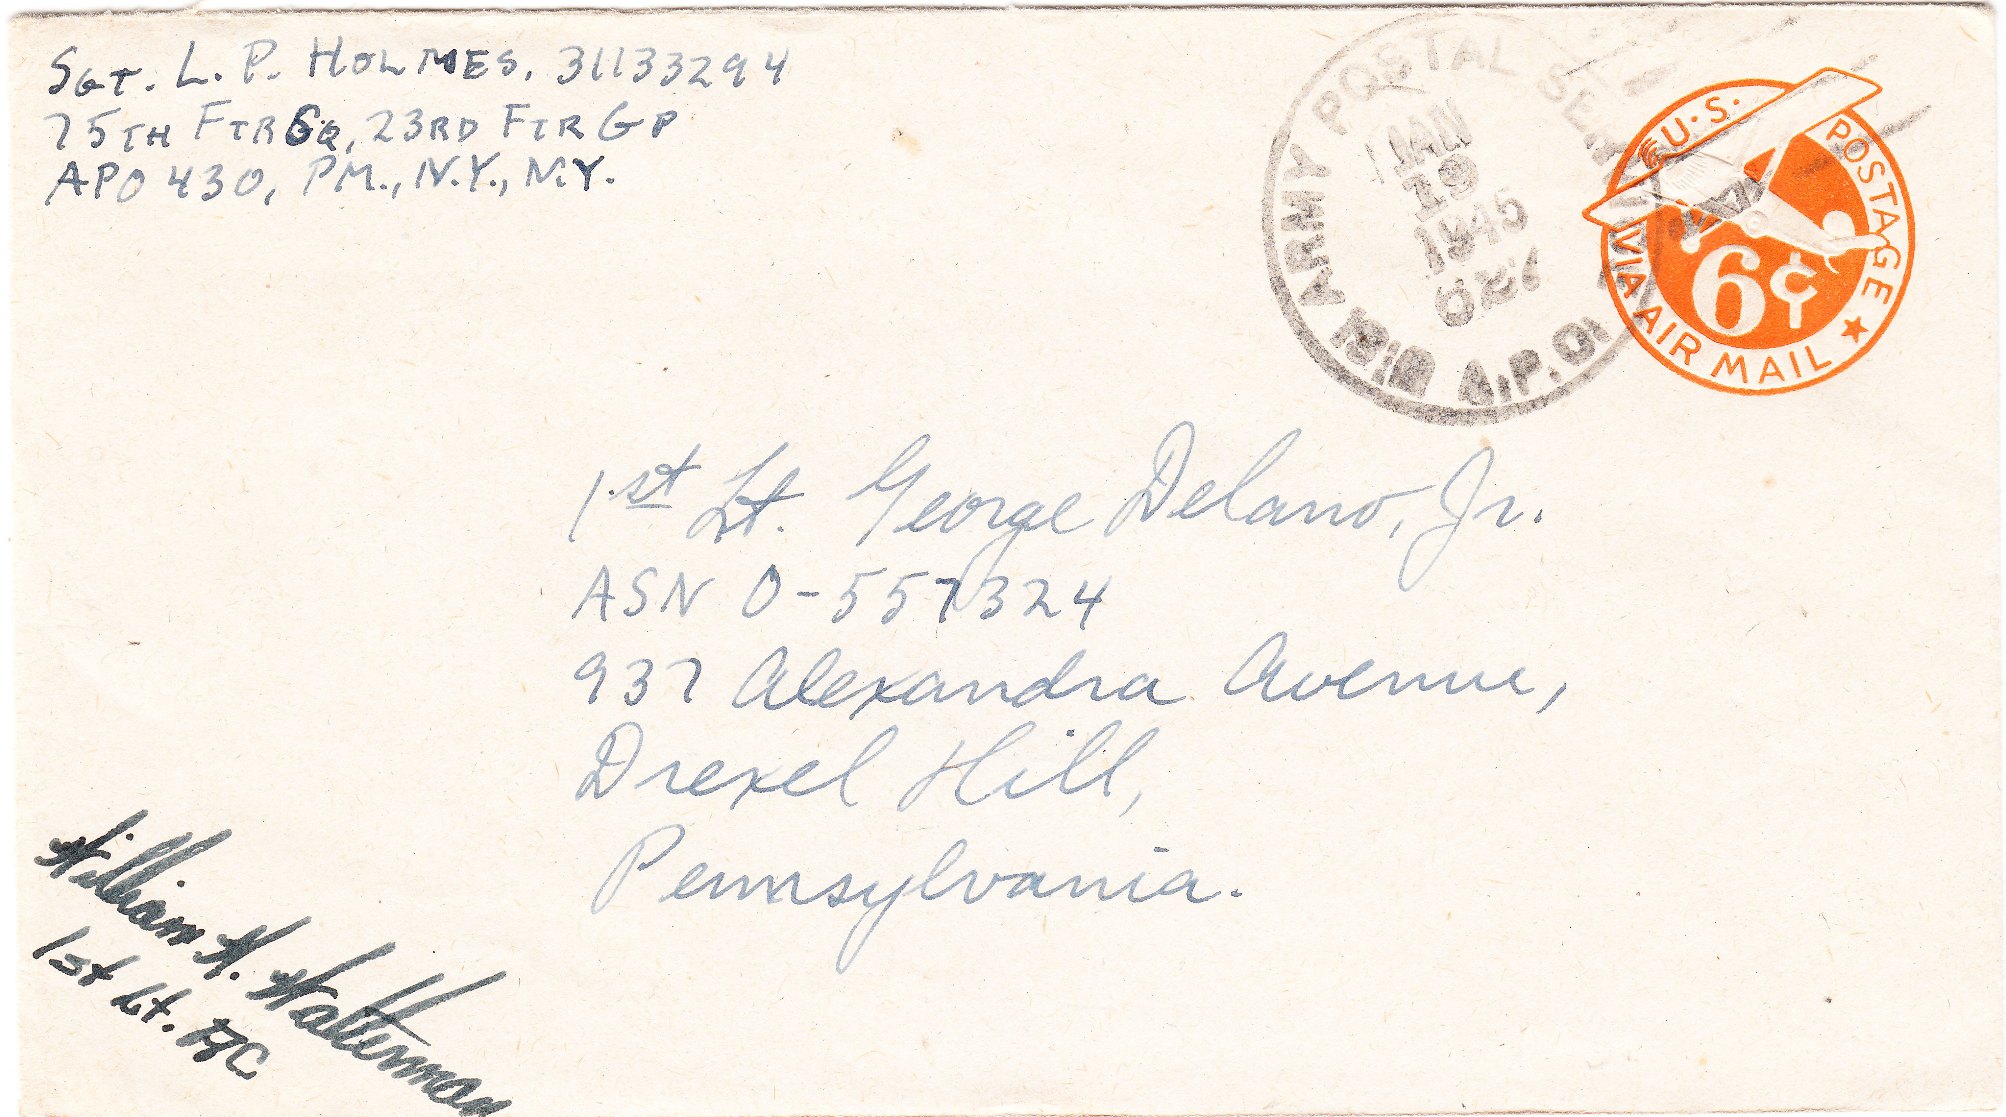 SGT. L. P. HOLMES, 31133294
75TH FTR SQ, 23RD FTR GP
APO 430, P.M., N.Y., N.Y.
ARMY POSTAL SERVICE
JAN
19
1945
A.P.O.
U.S. POSTAGE
6¢
VIA AIR MAIL
1st Lt. George Delano, Jr.
ASN O-557324
937 Alexandra Avenue,
Drexel Hill,
Pennsylvania.
William H. Walterman
1st Lt. AC